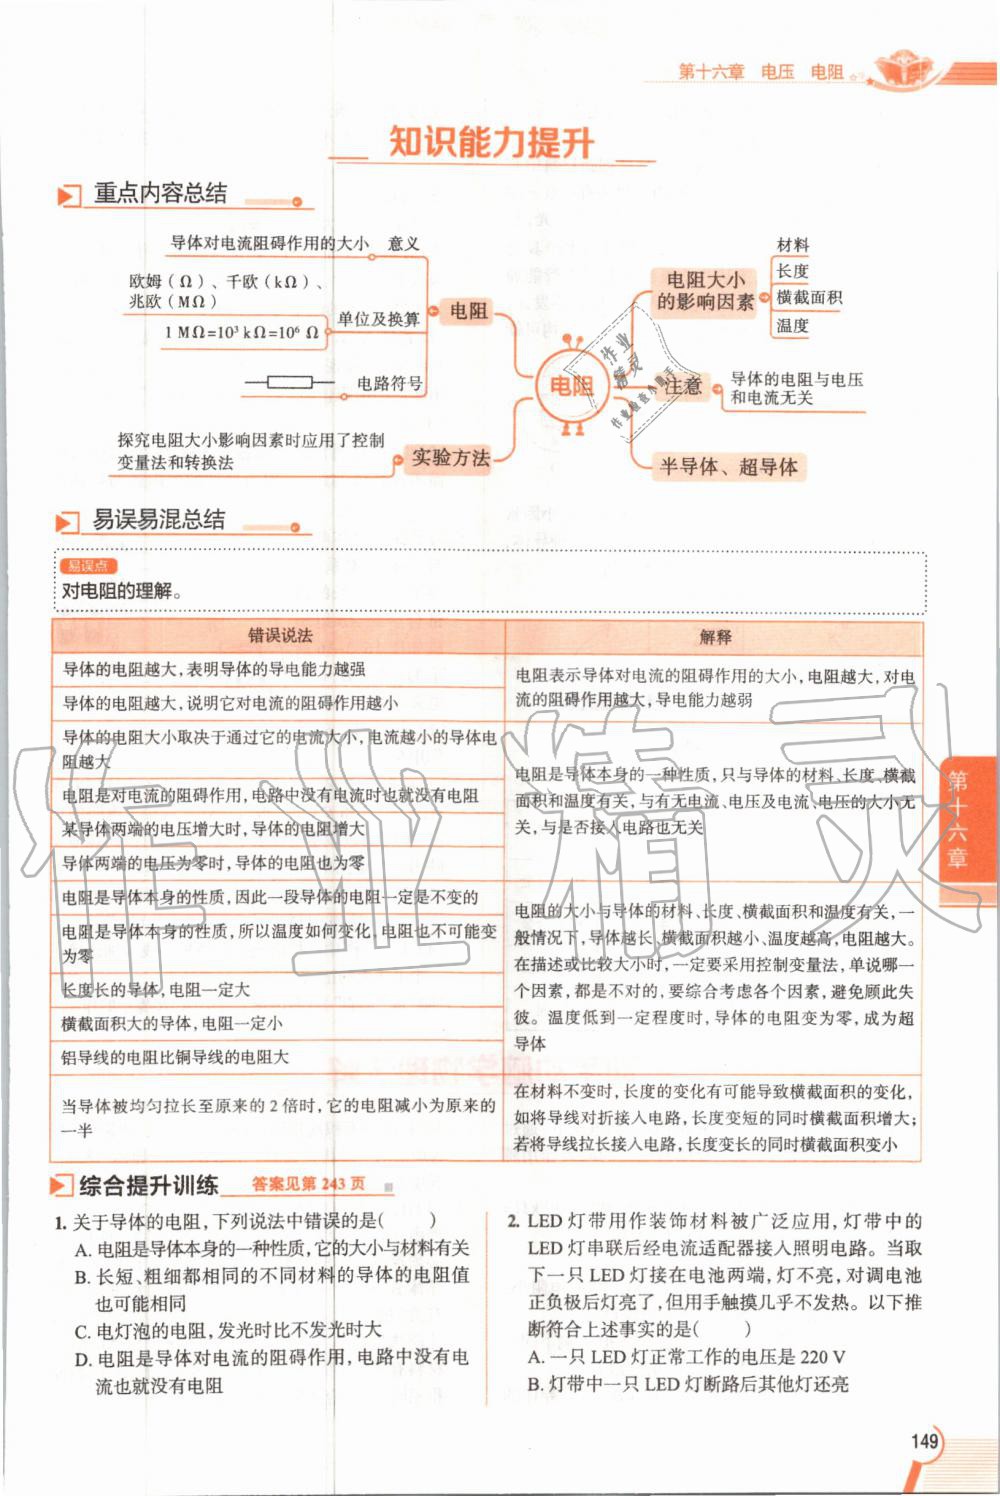 第十六章 电压 电阻
知识能力提升
重点内容总结
导体对电流阻碍作用的大小 意义
欧姆(Ω)、千欧(kΩ)、
兆欧(MΩ)
1 MΩ=10³ kΩ=10⁶ Ω
单位及换算
电路符号
电阻
探究电阻大小影响因素时应用了控制
变量法和转换法
实验方法
电阻
电阻大小
的影响因素
材料
长度
横截面积
温度
注意
导体的电阻与电压
和电流无关
半导体、超导体
易误易混总结
易误点
对电阻的理解。
错误说法
解释
导体的电阻越大,表明导体的导电能力越强
导体的电阻越大,说明它对电流的阻碍作用越小
电阻表示导体对电流的阻碍作用的大小,电阻越大,对电
流的阻碍作用越大,导电能力越弱
导体的电阻大小取决于通过它的电流大小,电流越小的导体电
阻越大
电阻是对电流的阻碍作用,电路中没有电流时也就没有电阻
某导体两端的电压增大时,导体的电阻增大
导体两端的电压为零时,导体的电阻也为零
电阻是导体本身的一种性质,只与导体的材料、长度、横截
面积和温度有关,与有无电流、电压及电流、电压的大小无
关,与是否接入电路也无关
电阻是导体本身的性质,因此一段导体的电阻一定是不变的
电阻是导体本身的性质,所以温度如何变化,电阻也不可能变
为零
长度长的导体,电阻一定大
横截面积大的导体,电阻一定小
铝导线的电阻比铜导线的电阻大
电阻的大小与导体的材料、长度、横截面积和温度有关,一
般情况下,导体越长、横截面积越小、温度越高,电阻越大。
在描述或比较大小时,一定要采用控制变量法,单说哪一
个因素,都是不对的,要综合考虑各个因素,避免顾此失
彼。温度低到一定程度时,导体的电阻变为零,成为超
导体
当导体被均匀拉长至原来的 2 倍时,它的电阻减小为原来的
一半
在材料不变时,长度的变化有可能导致横截面积的变化,
如将导线对折接入电路,长度变短的同时横截面积增大;
若将导线拉长接入电路,长度变长的同时横截面积变小
综合提升训练 答案见第 243 页
1. 关于导体的电阻,下列说法中错误的是( )
A. 电阻是导体本身的一种性质,它的大小与材料有关
B. 长短、粗细都相同的不同材料的导体的电阻值
也可能相同
C. 电灯泡的电阻,发光时比不发光时大
D. 电阻是导体对电流的阻碍作用,电路中没有电
流也就没有电阻
2. LED 灯带用作装饰材料被广泛应用,灯带中的
LED 灯串联后经电流适配器接入照明电路。当取
下一只 LED 灯接在电池两端,灯不亮,对调电池
正负极后灯亮了,但用手触摸几乎不发热。以下推
断符合上述事实的是( )
A. 一只 LED 灯正常工作的电压是 220 V
B. 灯带中一只 LED 灯断路后其他灯还亮
第十六章
149
作业精灵
作业
精灵
作业检查小助手